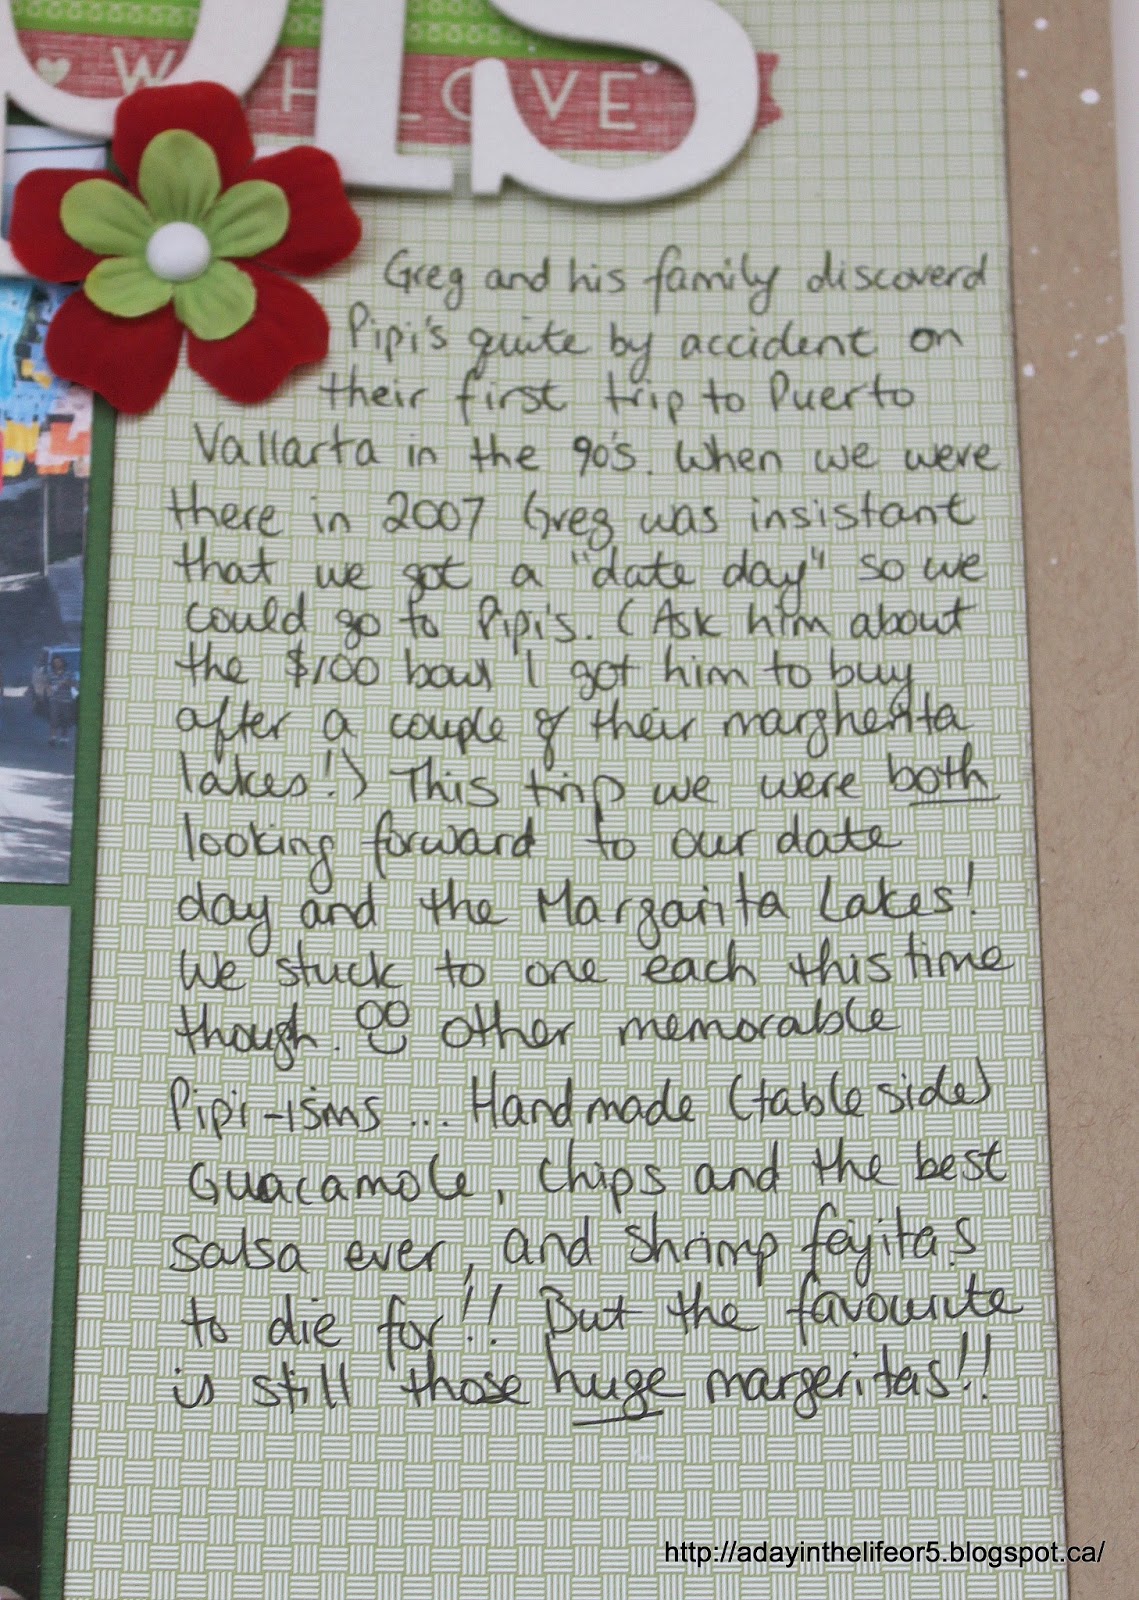 WITH LOVE
Greg and his family discoverd
Pipi's quite by accident on
their first trip to Puerto
Vallarta in the 90's. When we were
there in 2007 Greg was insistant
that we got a "date day" so we
could go to Pipi's. (Ask him about
the $100 bowl I got him to buy
after a couple of their margherita
lakes!) This trip we were both
looking forward to our date
day and the Margarita Lakes!
We stuck to one each this time
though. Other memorable
Pipi-isms ... Handmade (tableside)
Guacamole, chips and the best
salsa ever, and shrimp fajitas
to die for!! But the favourite
is still those huge margeritas!!
http://adayinthelifeor5.blogspot.ca/